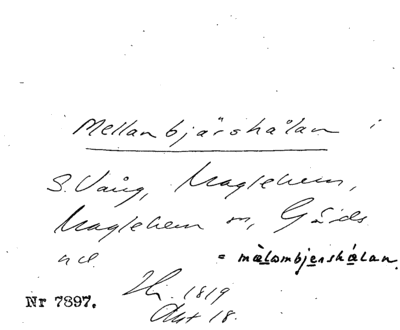 Mellanbjärshålan i
S. Vång, Maglehem,
Maglehem sn, Gärds
hd = målombjershålan.
1819
Akt 18.
Nr 7897.